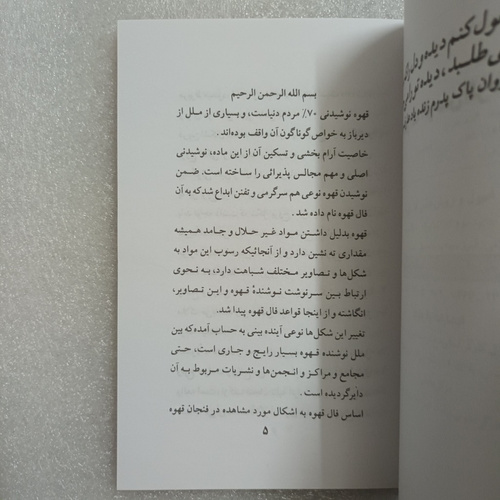 بسم الله الرحمن الرحیم
قهوه نوشیدنی ۷۰٪ مردم دنیاست، و بسیاری از ملل از
دیرباز به خواص گوناگون آن واقف بوده‌اند.
خاصیت آرام بخشی و تسکین آن از این ماده، نوشیدنی
اصلی و مهم مجالس پذیرائی را ساخته است. ضمن
نوشیدن قهوه نوعی هم سرگرمی و تفنن ابداع شد که به آن
فال قهوه نام داده شد.
قهوه بدلیل داشتن مواد غیر حلال و جامد همیشه
مقداری ته نشین دارد و از آنجائیکه رسوب این مواد به
شکل‌ها و تصاویر مختلف شباهت دارد، به نحوی
ارتباط بین سرنوشت نوشندهٔ قهوه و این تصاویر،
انگاشته و از اینجا قواعد فال قهوه پیدا شد.
تعبیر این شکل‌ها نوعی آینده بینی به حساب آمده که بین
ملل نوشنده قهوه بسیار رایج و جاری است، حتی
مجامع و مراکز و انجمن‌ها و نشریات مربوط به آن
دایر گردیده است.
اساس فال قهوه به اشکال مورد مشاهده در فنجان قهوه
۵
ول کنم دیده و دل را
ی طلبد، دیده تو را
وان پاک پدرم زنده یاد